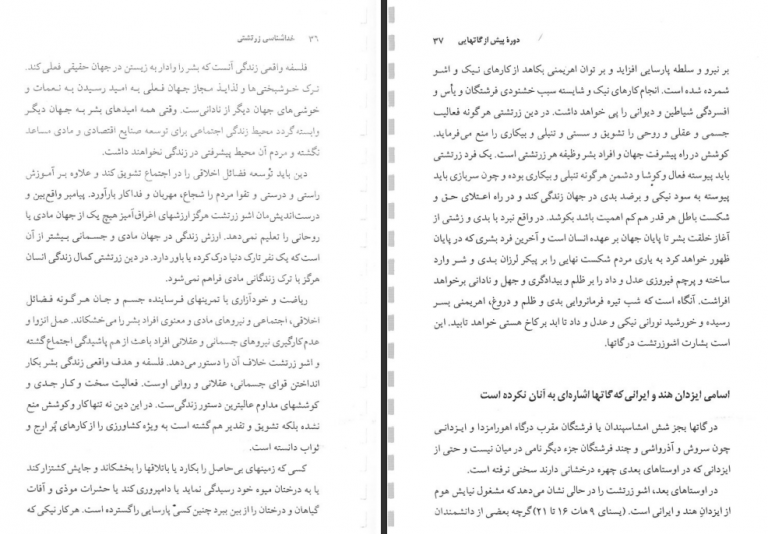 ۳۶ خداشناسی زرتشتی
فلسفه واقعی زندگی آنست که بشر را وادار به زیستن در جهان حقیقی فعلی کند.
ترک خوشبختی‌ها و لذایذ مجاز جهان فعلی به امید رسیدن به نعمات و
خوشی‌های جهان دیگر از نادانی‌ست. وقتی همه امیدهای بشر به جهان دیگر
وابسته گردد محیط زندگی اجتماعی برای توسعه صنایع اقتصادی و مادی مساعد
نگشته و مردم آن محیط پیشرفتی در زندگی نخواهند داشت.
دین باید توسعه فضائل اخلاقی را در اجتماع تشویق کند و علاوه بر آموزش
راستی و درستی و تقوا مردم را شجاع، مهربان و فداکار بارآورد. پیامبر واقع‌بین و
درست‌اندیش‌مان اشو زرتشت هرگز ارزشهای اغراق‌آمیز هیچ یک از جهان مادی یا
روحانی را تعلیم نمی‌دهد. ارزش زندگی در جهان مادی و جسمانی بیشتر از آن
است که یک نفر تارک دنیا درک کرده یا باور دارد. در دین زرتشتی کمال زندگی انسان
هرگز با ترک زندگانی مادی فراهم نمی‌شود.
ریاضت و خودآزاری با تمرینهای فرساینده جسم و جان هرگونه فضائل
اخلاقی، اجتماعی و نیروهای مادی و معنوی افراد بشر را می‌خشکاند. عمل انزوا و
عدم کارگیری نیروهای جسمانی و عقلانی افراد باعث از هم پاشیدگی اجتماع گشته
و اشو زرتشت خلاف آن را دستور می‌دهد. فلسفه و هدف واقعی زندگی بشر بکار
انداختن قوای جسمانی، عقلانی و روانی اوست. فعالیت سخت و کار جدی و
کوششهای مداوم عالیترین دستور زندگی‌ست. در این دین نه تنها کار و کوشش منع
نشده بلکه تشویق و تقدیر هم گشته است به ویژه کشاورزی را از کارهای پُر ارج و
ثواب دانسته است.
کسی که زمینهای بی‌حاصل را بکارد یا باتلاقها را بخشکاند و جایش کشتزار کند
یا به درختان میوه خود رسیدگی نماید یا دامپروری کند یا حشرات موذی و آفات
گیاهان و درختان را از بین ببرد چنین کسی پارسایی را گسترده است. هر کار نیکی که
دورهٔ پیش از گاتهایی ۳۷
بر نیرو و سلطه پارسایی افزاید و بر توان اهریمنی بکاهد از کارهای نیک و اشو
شمرده شده است. انجام کارهای نیک و شایسته سبب خشنودی فرشتگان و یأس و
افسردگی شیاطین و دیوانی را پی خواهد داشت. در دین زرتشتی هرگونه فعالیت
جسمی و عقلی و روحی را تشویق و سستی و تنبلی و بیکاری را منع می‌فرماید.
کوشش در راه پیشرفت جهان و افراد بشر وظیفه هر زرتشتی است. یک فرد زرتشتی
باید پیوسته فعال و کوشا و دشمن هرگونه تنبلی و بیکاری بوده و چون سربازی باید
پیوسته به سود نیکی و برضد بدی در جهان زندگی کند و در راه اعتلای حق و
شکست باطل هر قدر هم کم اهمیت باشد بکوشد. در واقع نبرد با بدی و زشتی از
آغاز خلقت بشر تا پایان جهان بر عهده انسان است و آخرین فرد بشری که در پایان
ظهور خواهد کرد به یاری مردم شکست نهایی را بر پیکر لرزان بدی و شر وارد
ساخته و پرچم فیروزی عدل و داد را بر ظلم و بیدادگری و جهل و نادانی برخواهد
افراشت. آنگاه است که شب تیره فرمانروایی بدی و ظلم و دروغ، اهریمنی بسر
رسیده و خورشید نورانی نیکی و عدل و داد تا ابد بر کاخ هستی خواهد تابید. این
است بشارت اشوزرتشت در گاتها.
اسامی ایزدان هند و ایرانی که گاتها اشاره‌ای به آنان نکرده است
در گاتها بجز شش امشاسپندان یا فرشتگان مقرب درگاه اهورامزدا و ایزدانی
چون سروش و آذرواشی و چند فرشتگان جزء دیگر نامی در میان نیست و حتی از
ایزدانی که در اوستاهای بعدی چهره درخشانی دارند سخنی نرفته است.
در اوستاهای بعد، اشو زرتشت را در حالی نشان می‌دهد که مشغول نیایش هوم
از ایزدان هند و ایرانی است. (یسنای ۹ هات ۱۶ تا ۲۱) گرچه بعضی از دانشمندان